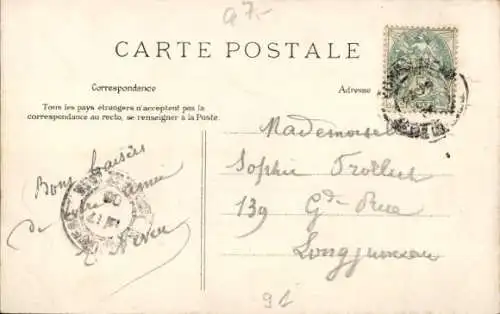 97.-
CARTE POSTALE
Correspondance
Adresse
Tous les pays étrangers n'acceptent pas la
correspondance au recto, se renseigner à la Poste.
Mademoisel
Sophie Trollech
139 Gde Rue
Longjumeau
Bons baisers
de votre amie
91